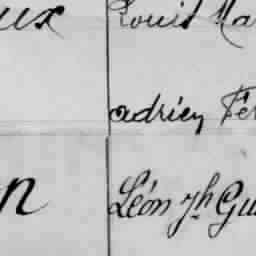 ux Louis Ma
adrien Fer
n Léon Jh Gu